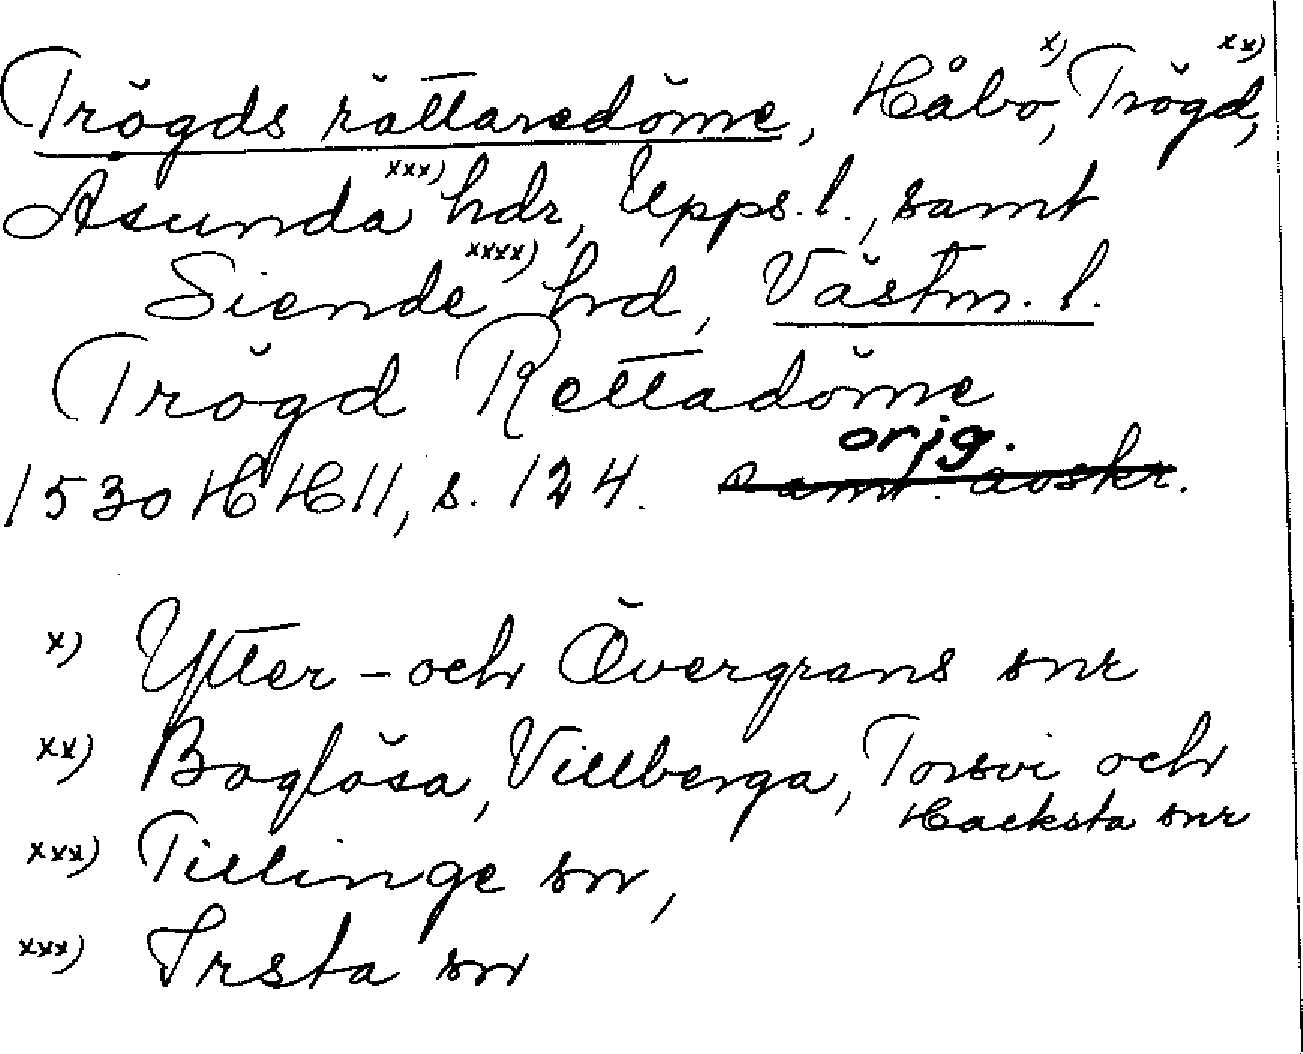 Trögds rättaredöme, Håbo x), Trögd xx),
Åsunda xxx) hdr, Upps. l., samt
Siende xxxx) hd, Västm. l.
Trögd Rettadöme
orig.
1530 HH 11, s. 124. samt. avskr.
x) Ytter- och Övergrans snr
xx) Boglösa, Villberga, Torsvi och
Hacksta snr
xxx) Tillinge sn,
xxx) Irsta sn